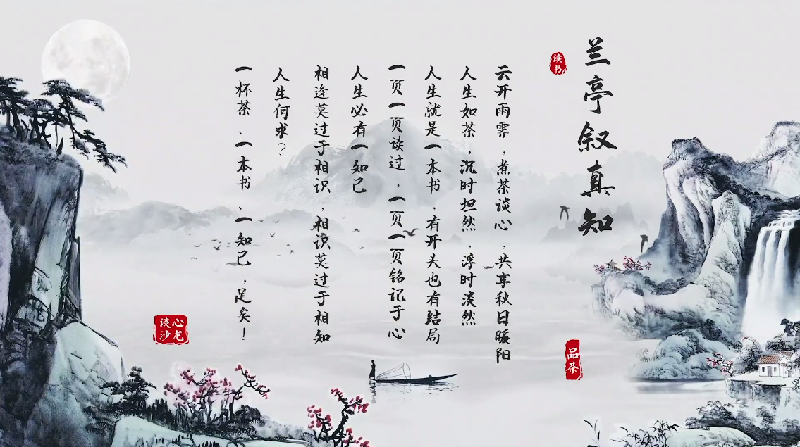 兰亭叙真知
读书
品茶
云开雨霁，煮茶谈心，共享秋日暖阳
人生如茶，沉时坦然，浮时淡然
人生就是一本书，有开头也有结局
一页一页读过，一页一页铭记于心
人生必有一知己
相逢莫过于相识，相识莫过于相知
人生何求？
一杯茶，一本书，一知己，足矣！
谈心
沙龙